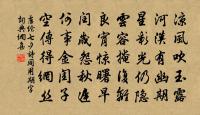 涼風吹玉露
河漢有幽期
星彩光仍隱
雲容掩復離
良宵驚曙早
閏歲怨秋遲
何事金閨子
空傳得網絲
盧綸七夕詩同用期字
詞典網集